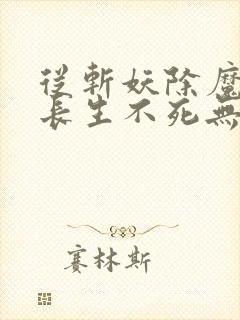 從斬妖除魔
長生不死無
賽林斯